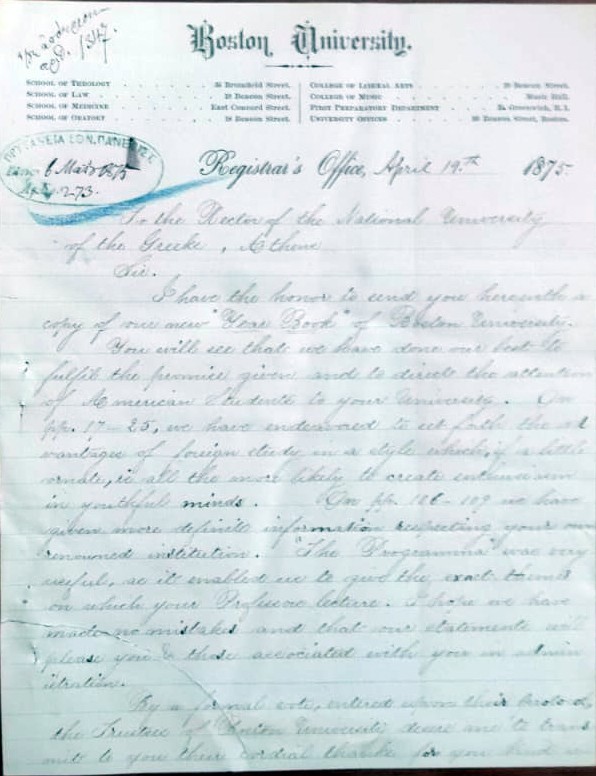 Boston University.
SCHOOL OF THEOLOGY 36 Bromfield Street.
SCHOOL OF LAW 18 Beacon Street.
SCHOOL OF MEDICINE East Concord Street.
SCHOOL OF ORATORY 18 Beacon Street.
COLLEGE OF LIBERAL ARTS 20 Beacon Street.
COLLEGE OF MUSIC Music Hall.
FIRST PREPARATORY DEPARTMENT E. Greenwich, R.I.
UNIVERSITY OFFICES 20 Beacon Street, Boston.
Registrar's Office, April 19.th 1875
273.
To the Rector of the National University
of the Greeks, Athens
Sir.
I have the honor to send you herewith a
copy of our new "Year Book" of Boston University.
You will see that we have done our best to
fulfil the promise given and to direct the attention
of American Students to your University. On
pp. 17-25, we have endeavored to set forth the ad
vantages of foreign study in a style which, if a little
ornate, is all the more likely to create enthusiasm
in youthful minds. On pp. 106-109 we have
given more definite information respecting your own
renowned institution. "The Programma" was very
useful, as it enabled us to give the exact themes
on which your Professors lecture. I hope we have
made no mistakes and that our statements will
please you & those associated with you in admin
istration.
By a formal vote, entered upon their Records,
the Trustees of Boston University desire me to trans
mit to you their cordial thanks for your kind